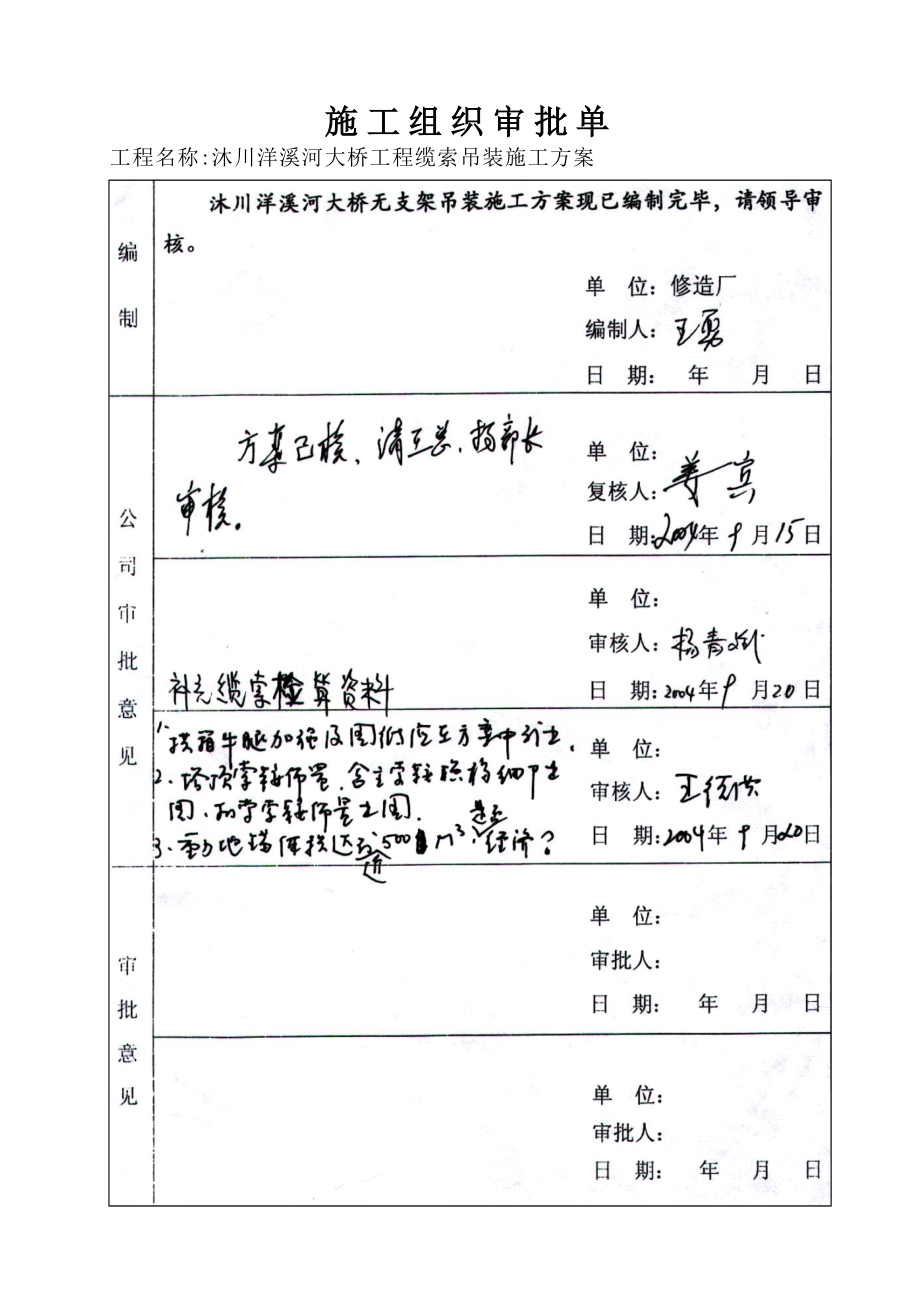 施工组织审批单
工程名称:沐川洋溪河大桥工程缆索吊装施工方案
编制
沐川洋溪河大桥无支架吊装施工方案现已编制完毕，请领导审
核。
单 位：修造厂
编制人：王勇
日 期： 年 月 日
公司审批意见
方案已核、请王总、杨部长
审核。
单 位：
复核人：姜宾
日 期：2004年9月15日
补充缆索检算资料
单 位：
审核人：杨青
日 期：2004年9月20日
1、拱箱牛腿加强及图例应在方案中
2、塔顶索鞍布置、含主索鞍
图、扣索索鞍布置出图.
3、重力地锚体积达到500 m³, 是否经济？
单 位：
审核人：王
日 期：2004年9月20日
审批意见
单 位：
审批人：
日 期： 年 月 日
单 位：
审批人：
日 期： 年 月 日